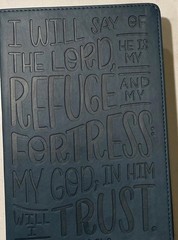 I WILL SAY OF
THE LORD, HE IS MY
REFUGE AND MY
FORTRESS;
MY GOD; IN HIM
WILL I TRUST.